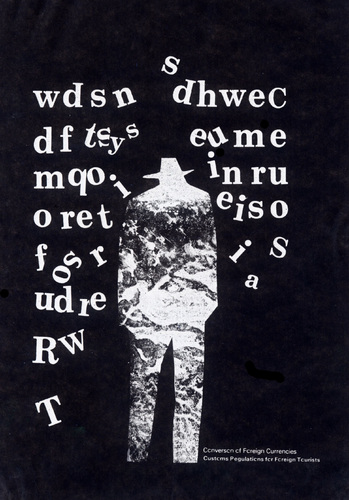 s
wdsn dhwec
df tsys eume
mqoi inru
oret eiso
fosr i s
udre a
RW
T
Conversion of Foreign Currencies
Customs Regulations for Foreign Tourists